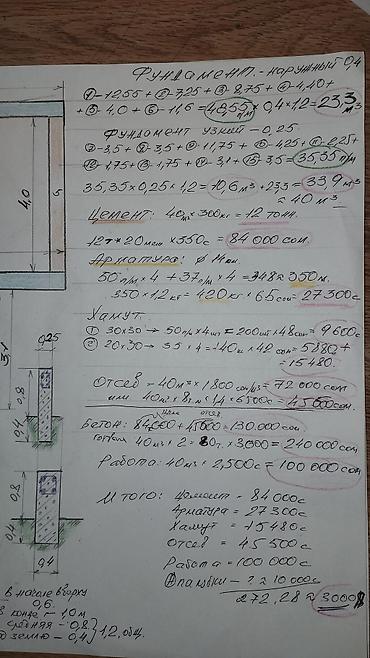 Фундамент. - наружный 0,4
① - 12,55 + ② - 7,25 + ③ - 8,75 + ④ - 4,40 +
+ ⑤ - 4,0 + ⑥ - 11,6 = 48,55 × 0,4 × 1,2 = 23,3 м³
п/м
Фундамент узкий - 0,25
3,5 + 3,5 + 11,75 + 4,25 + 2,25 +
1,75 + 1,75 + 3,1 + 3,5 = 35,35 п/м
35,35 × 0,25 × 1,2 = 10,6 м³ + 23,3 = 33,9 м³
≈ 40 м³
Цемент: 40 м³ × 300 кг = 12 тонн.
12 т × 20 меш × 350 с = 84 000 сом.
Арматура: ф 14 мм.
50 п/м × 4 + 37 п/м × 4 = 348 ≈ 350 м.
350 × 1,2 кг = 420 кг × 65 сом = 27 300 с
Хамут.
① 30×30 → 50 п/м × 4 шт = 200 шт × 48 сом = 9 600 с
② 20×30 → 35 × 4 = 140 × 42 сом = 5880 +
= 15480.
Отсев - 40 м³ × 1800 сом/м³ = 72 000 сом
или 40 м³ × 1,4 × 6500 с = 45 500 сом
Бетон: 84 000 + 45 000 = 130.000 сом
40 м³ × 2 = 80 т. × 3,000 = 240 000 сом
Работа: 40 м³ × 2,500 с = 100 000 сом
Итого: Цемент - 84 000 с
Арматура - 27 300 с
Хамут - 15480 с
Отсев - 45 500 с
Работа = 100 000 с
Опалубки - ? ≈ 10 000 с
272,28 ≈ 3000 $
4,0
5
0,25
0,8
0,4
0,8
0,4
0,4
в начале вверху
0,6.
в конце - 1,0 м
средняя - 0,8
землю - 0,4 } 1,2 общ.